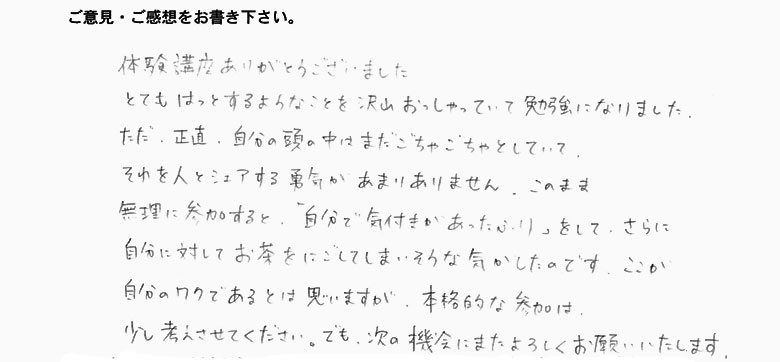 ご意見・ご感想をお書き下さい。
体験講座ありがとうございました
とてもはっとするようなことを沢山おっしゃっていて勉強になりました.
ただ、正直、自分の頭の中はまだごちゃごちゃとしていて、
それを人とシェアする勇気があまりありません、このまま
無理に参加すると、「自分で気付きがあったふり」をして、さらに
自分に対してお茶をにごしてしまいそうな気がしたのです、ここが
自分のワクであるとは思いますが、本格的な参加は、
少し考えさせてください。でも、次の機会にまたよろしくお願いいたします.